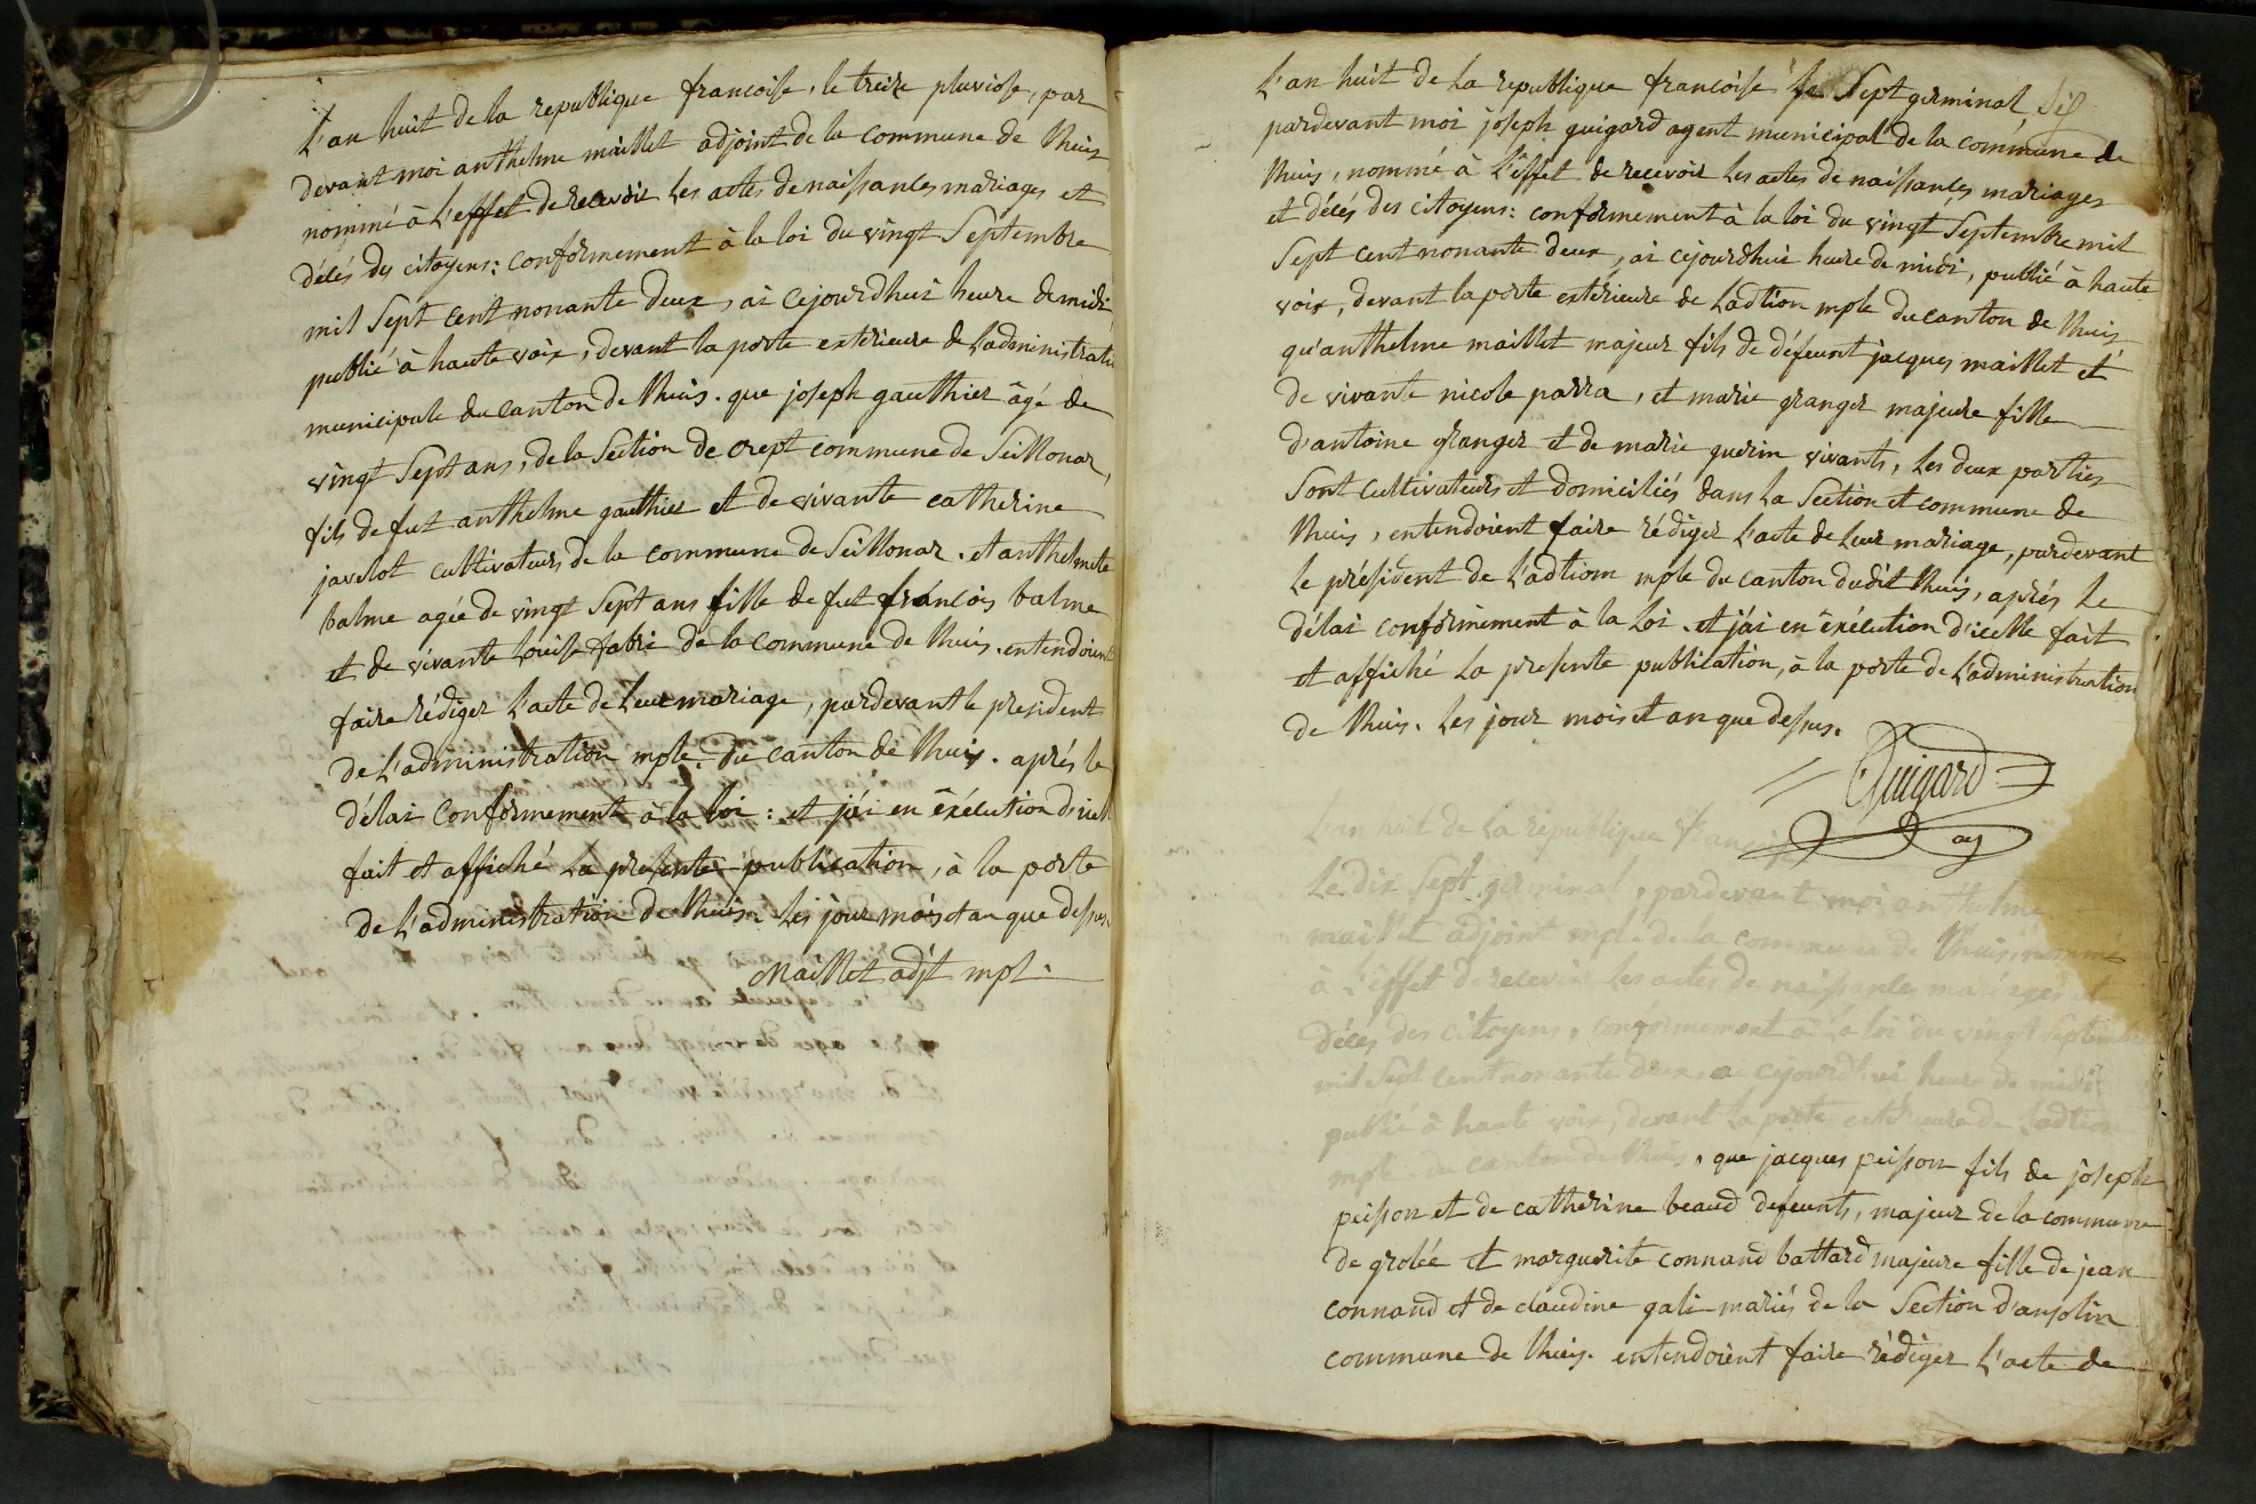 L'an huit de la republique francoise, le treize pluviose, par
devant moi anthelme maillet adjoint de la commune de lhuis
nommé à l'effet de recevoir les actes de naissances mariages et
décés des citoyens: conformement à la loi du vingt Septembre
mil Sept cent nonante deux, ai cejourdhui heure de midi,
publié à haute voix, devant la porte exterieure de l'administrati
municipale du canton de lhuis. que joseph gauthier âgé de
vingt Sept ans, de la Section de crept commune de Seillonaz,
fils de fut anthelme gauthier et de vivante catherine
javelot cultivateurs de la commune de Seillonaz. et anthelmete
balme agée de vingt Sept ans fille de fut francois balme
et de vivante Louise fabri de la commune de lhuis. entendoient
faire rédiger l'acte de leur mariage, pardevant le president
de l'administration mple. du canton de lhuis. aprés le
délai conformement à la loi: et j'ai en éxécution d'icell
fait et affiché la presente publication, à la porte
de l'administration de lhuis. les jour mois et an que dessus.
Maillet adjt mpl.
L'an huit de la republique francoise le Sept germinal
pardevant moi joseph guigard agent municipal de la commune de
lhuis, nommé à l'effet de recevoir les actes de naissances mariages
et décés des citoyens: conformement à la loi du vingt Septembre mil
Sept cent nonante deux, ai cejourdhui heure de midi, publié à haute
voix, devant la porte extérieure de l'adtion mple du canton de lhuis
qu'anthelme maillet majeur fils de défeunt jacques maillet et
de vivante nicole parra, et marie granger majeure fille
d'antoine granger et de marie guerin vivants, les deux parties
Sont cultivateurs et domiciliés dans la Section et commune de
lhuis, entendoient faire rédiger l'acte de leur mariage, pardevant
le président de l'adtion mple du canton dudit lhuis, aprés le
délai conformement à la loi. et j'ai en éxécution d'icelle fait
et affiché la presente publication, à la porte de l'administration
de lhuis. les jour mois et an que dessus.
Guigard
ag
L'an huit de la republique francoise
le dix Sept germinal, pardevant moi anthelme
maillet adjoint mple de la commune de lhuis, nommé
à l'effet de recevoir les actes de naissances mariages et
décés des citoyens, conformement à la loi du vingt Septembre
mil Sept cent nonante deux, ai cejourdhui heure de midi
publié à haute voix, devant la porte exterieure de l'adtion
mple du canton de lhuis, que jacques peisson fils de joseph
peisson et de catherine beaud defeunts, majeur de la commune
de grolée et marguerite connand battard majeure fille de jean
connand et de claudine gali mariés de la Section d'ansolin
commune de lhuis. entendoient faire rédiger l'acte de